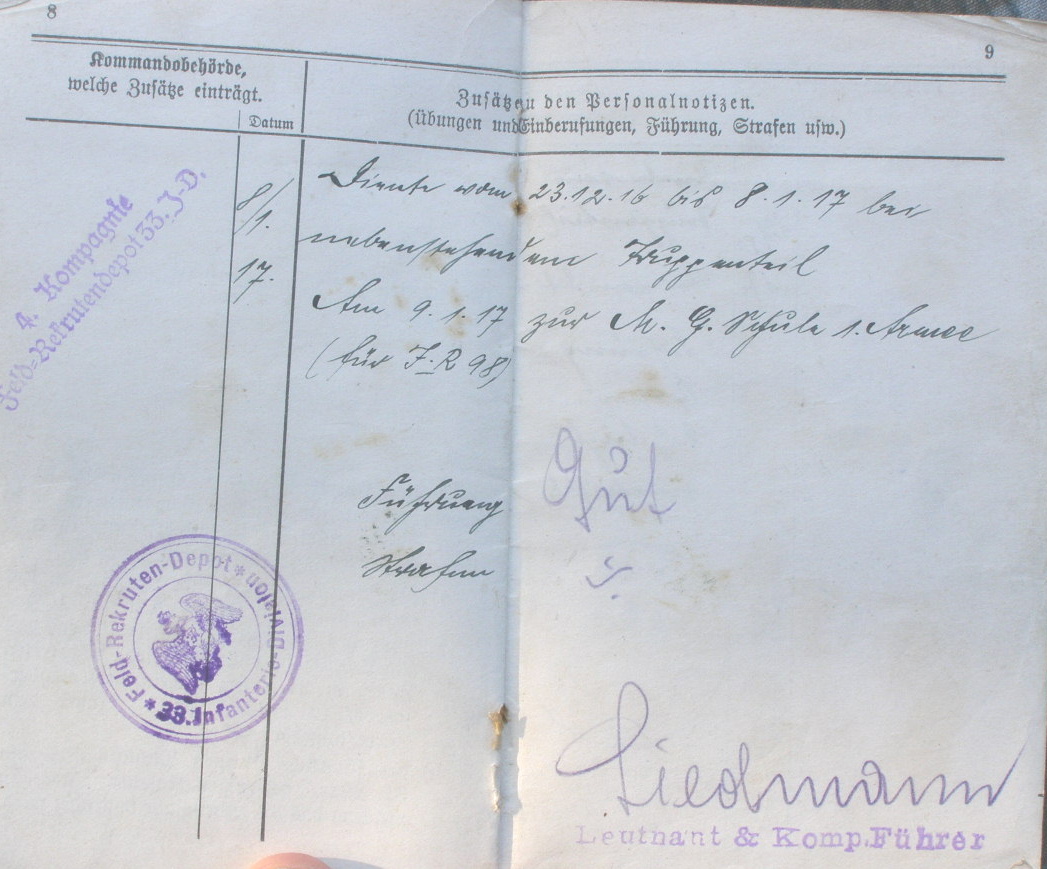 8
9
Kommandobehörde,
welche Zusätze einträgt.
Datum
Zusätze zu den Personalnotizen.
(Übungen und Einberufungen, Führung, Strafen usw.)
4. Kompagnie
Feld-Rekrutendepot 33. J-D.
8/1.
17.
Diente vom 23.12.16 bis 8.1.17 bei
nebenstehendem Truppenteil
Am 9.1.17 zur M. G. Schule 1. Armee
(für J.R 98)
Führung Gut
Strafen
* Feld-Rekruten-Depot * 33. Infanterie-Division
Liedmann
Leutnant & Komp.Führer